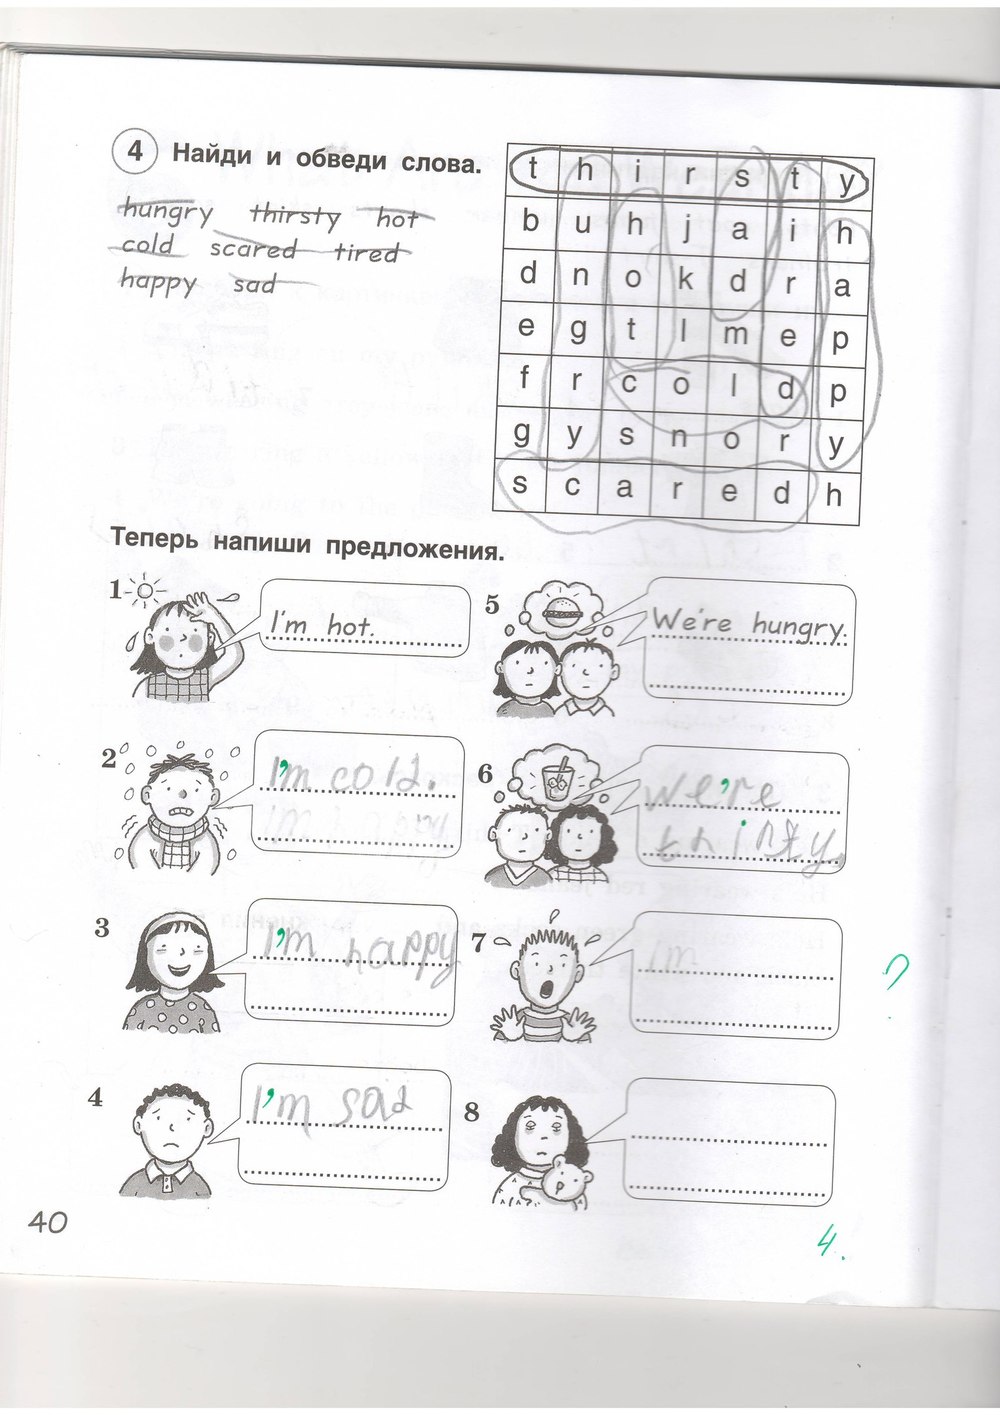 4 Найди и обведи слова.
hungry thirsty hot
cold scared tired
happy sad
t h i r s t y
b u h j a i h
d n o k d r a
e g t l m e p
f r c o l d p
g y s n o r y
s c a r e d h
Теперь напиши предложения.
1 I'm hot.
2 I'm cold.
3 I'm happy
4 I'm sad
5 We're hungry.
6 We're
thirsty
7 Im
?
8
40
4.